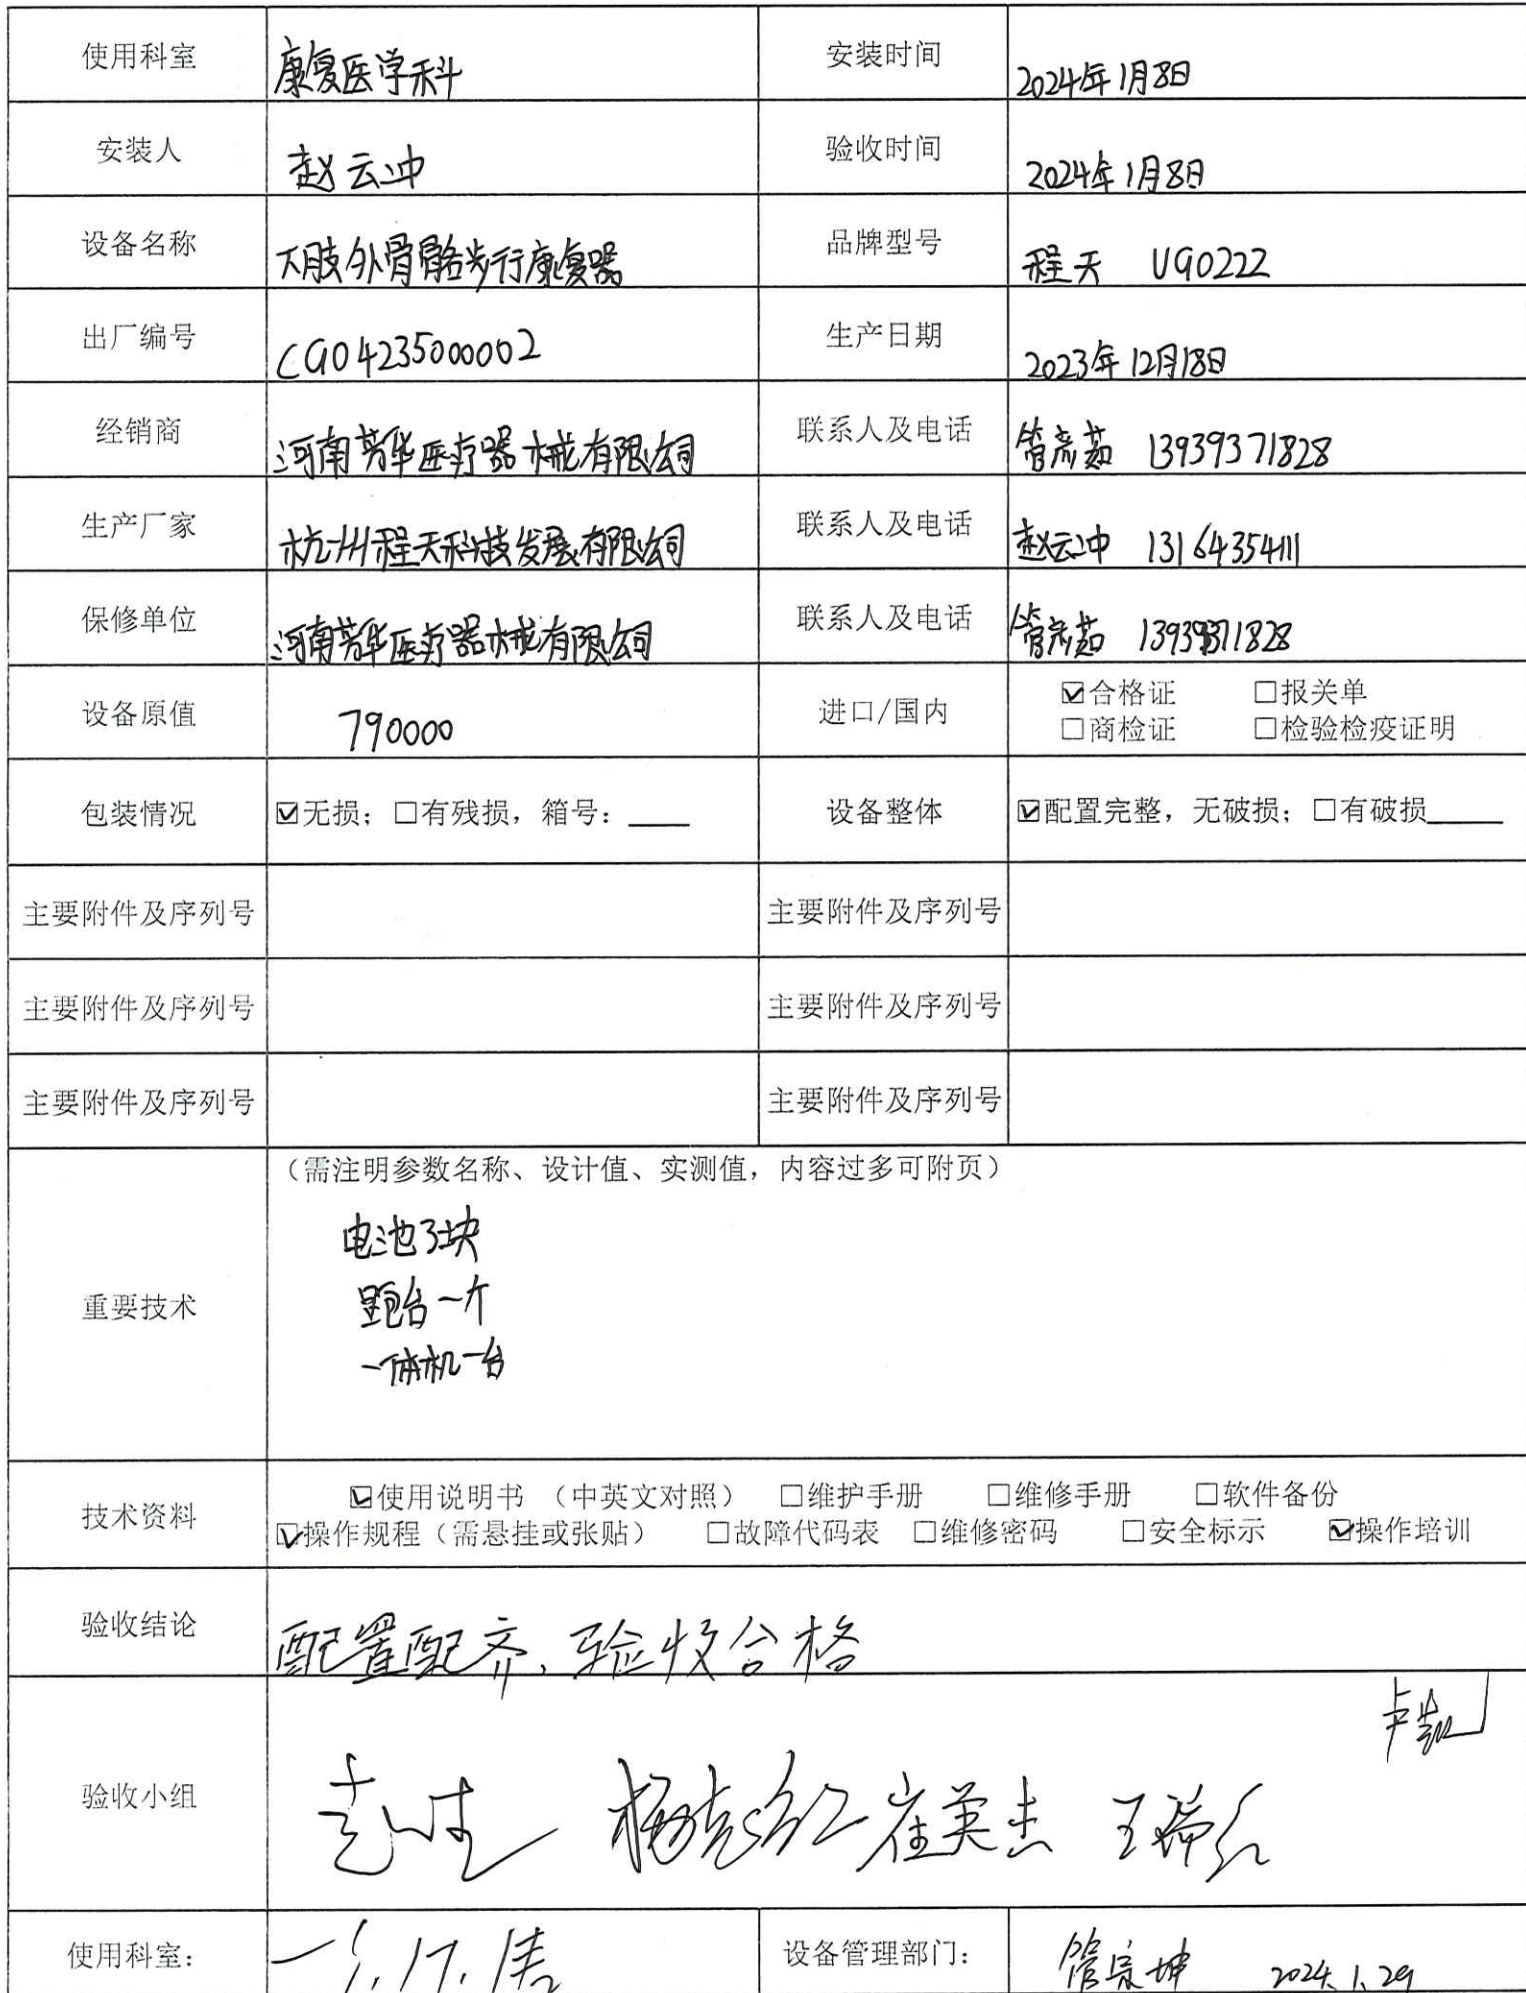 使用科室 康复医学科 安装时间 2024年1月8日
安装人 赵云冲 验收时间 2024年1月8日
设备名称 下肢外骨骼步行康复器 品牌型号 程天 UG0222
出厂编号 CG04235000002 生产日期 2023年12月18日
经销商 河南芳华医疗器械有限公司 联系人及电话 管彦茹 13939371828
生产厂家 杭州程天科技发展有限公司 联系人及电话 赵云冲 13164354111
保修单位 河南芳华医疗器械有限公司 联系人及电话 管彦茹 13939371828
设备原值 790000 进口/国内 ☑合格证 □报关单
□商检证 □检验检疫证明
包装情况 ☑无损；□有残损，箱号：____ 设备整体 ☑配置完整，无破损；□有破损____
主要附件及序列号 主要附件及序列号
主要附件及序列号 主要附件及序列号
主要附件及序列号 主要附件及序列号
（需注明参数名称、设计值、实测值，内容过多可附页）
电池3块
重要技术 跑台一个
一体机一台
技术资料 ☑使用说明书 （中英文对照） □维护手册 □维修手册 □软件备份
☑操作规程（需悬挂或张贴） □故障代码表 □维修密码 □安全标示 ☑操作培训
验收结论 配置配齐、验收合格
验收小组 崔英杰
使用科室： 设备管理部门： 2024.1.29